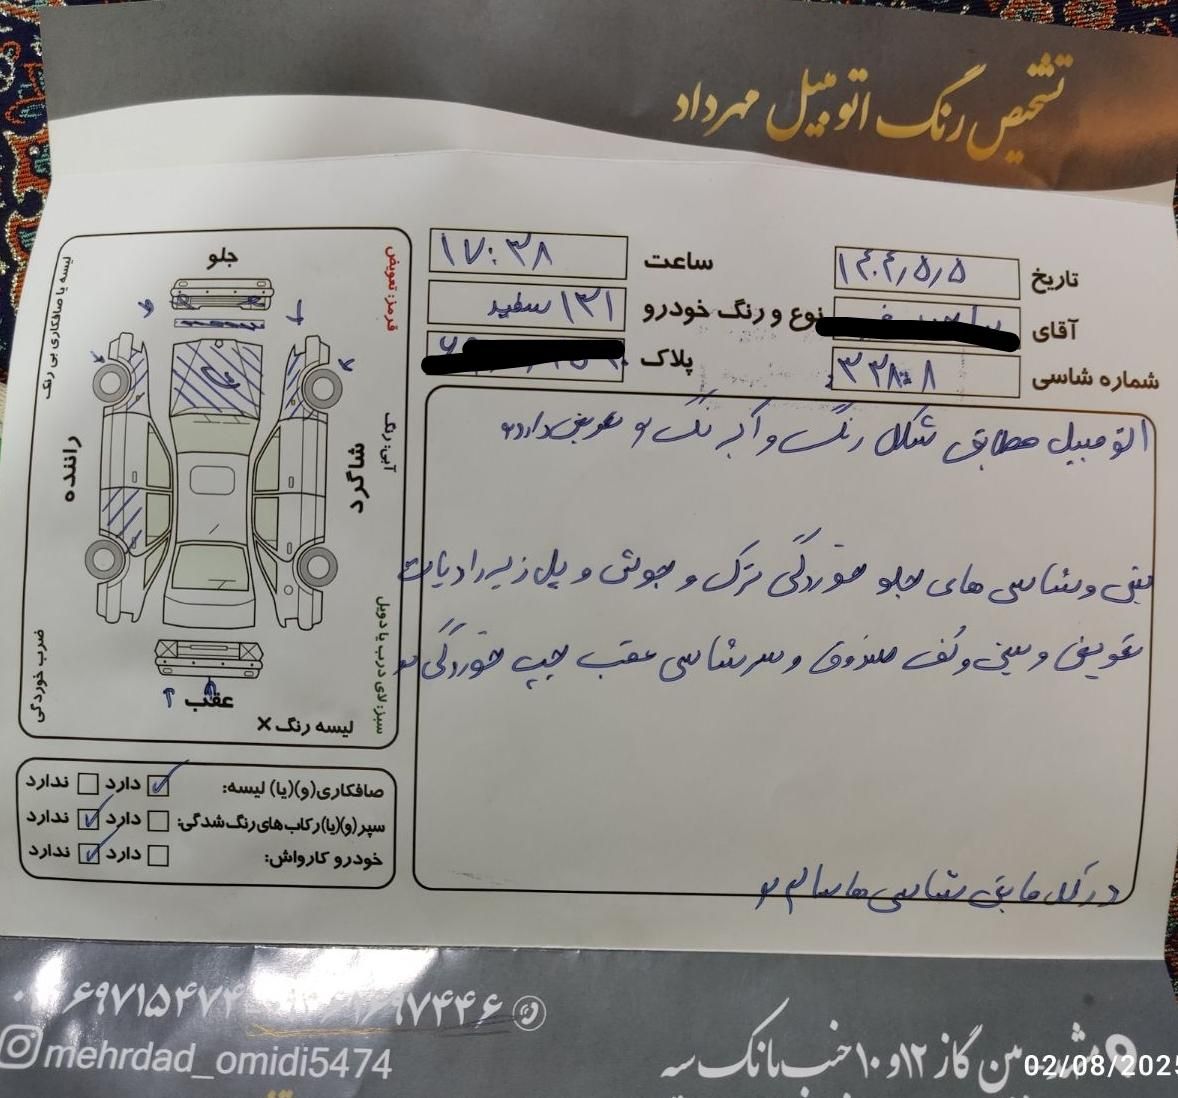 تشخیص رنگ اتومبیل مهرداد
تاریخ ۱۴۰۴/۵/۵
ساعت ۱۷:۳۸
آقای
نوع و رنگ خودرو ۱۳۱ سفید
شماره شاسی ۳۳۸۰۸
پلاک
اتومبیل مطابق شکل رنگ و آبرنگ و تعویض دارد
سینی و شاسی های جلو خوردگی ترک و جوش و پل زیر رادیات
تعویض و سینی و کف صندوق و سرشاسی عقب چپ خوردگی
در کل مابقی شاسی ها سالم
جلو
عقب
راننده
شاگرد
لیسه یا صافکاری بی رنگ
ضرب خوردگی
قرمز: تعویض
آبی: رنگ
سبز: لای درب یا دویل
لیسه رنگ ×
صافکاری(و)(یا) لیسه: دارد ندارد
سپر(و)(یا)رکاب‌های رنگ شدگی: دارد ندارد
خودرو کارواش: دارد ندارد
mehrdad_omidi5474
بین گاز ۱۲و۱۰ جنب بانک سپه
02/08/2025